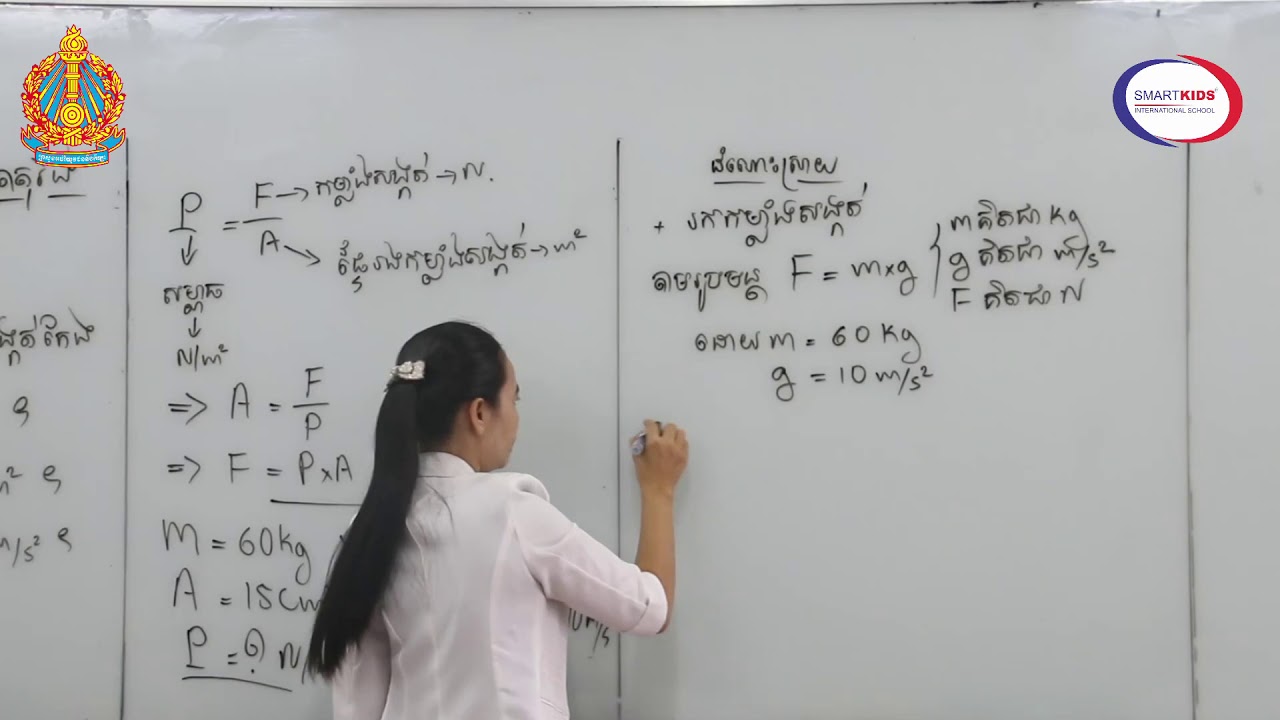 SMARTKIDS®
INTERNATIONAL SCHOOL
m² ๑
m/s² ๑
P = F/A
F → កម្លាំងសង្កត់ → N.
A → ផ្ទៃរងកម្លាំងសង្កត់ → m²
សម្ពាធ
N/m²
=> A = F/P
=> F = P×A
m = 60kg
A = 15cm
P = ?
10m/s
ដំណោះស្រាយ
+ រកកម្លាំងសង្កត់
តាមរូបមន្ត F = m×g
m គិតជា kg
g គិតជា m/s²
F គិតជា N
ដោយ m = 60 kg
g = 10 m/s²